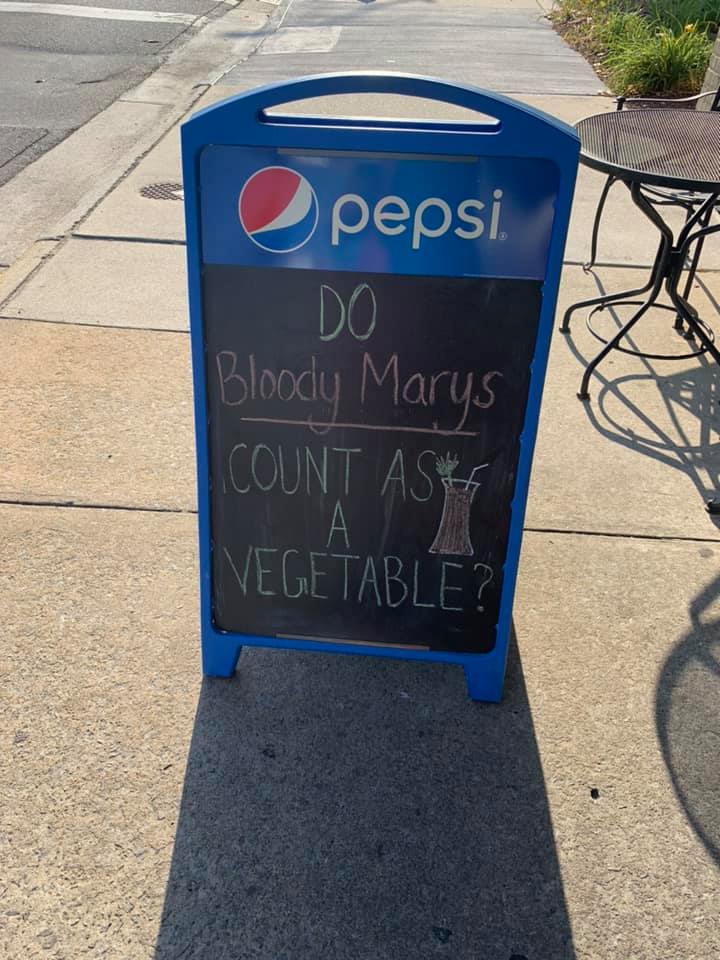 pepsi
DO
Bloody Marys
COUNT AS
A
VEGETABLE?